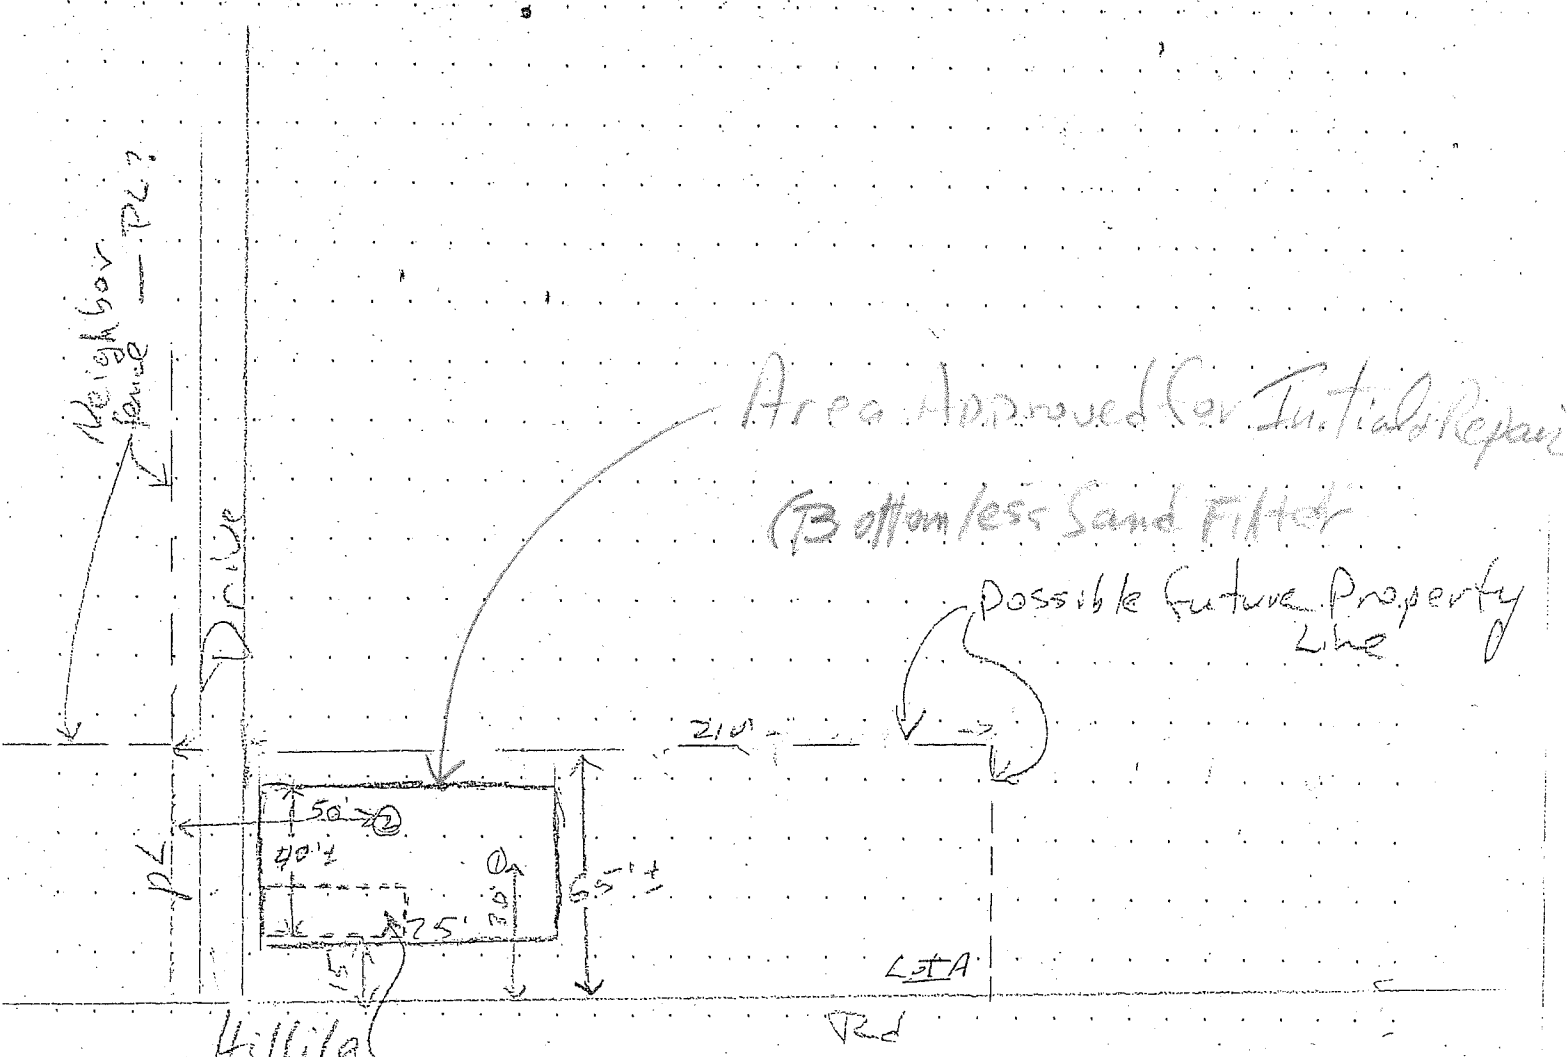 Neighbor
fence — PL?
Area Approved for Initial & Repair
(Bottomless Sand Filter
Possible future Property
Line
Drive
210'
50'
2
40'±
1
30'
65'±
75'
15'
PL
Lot A
Rd